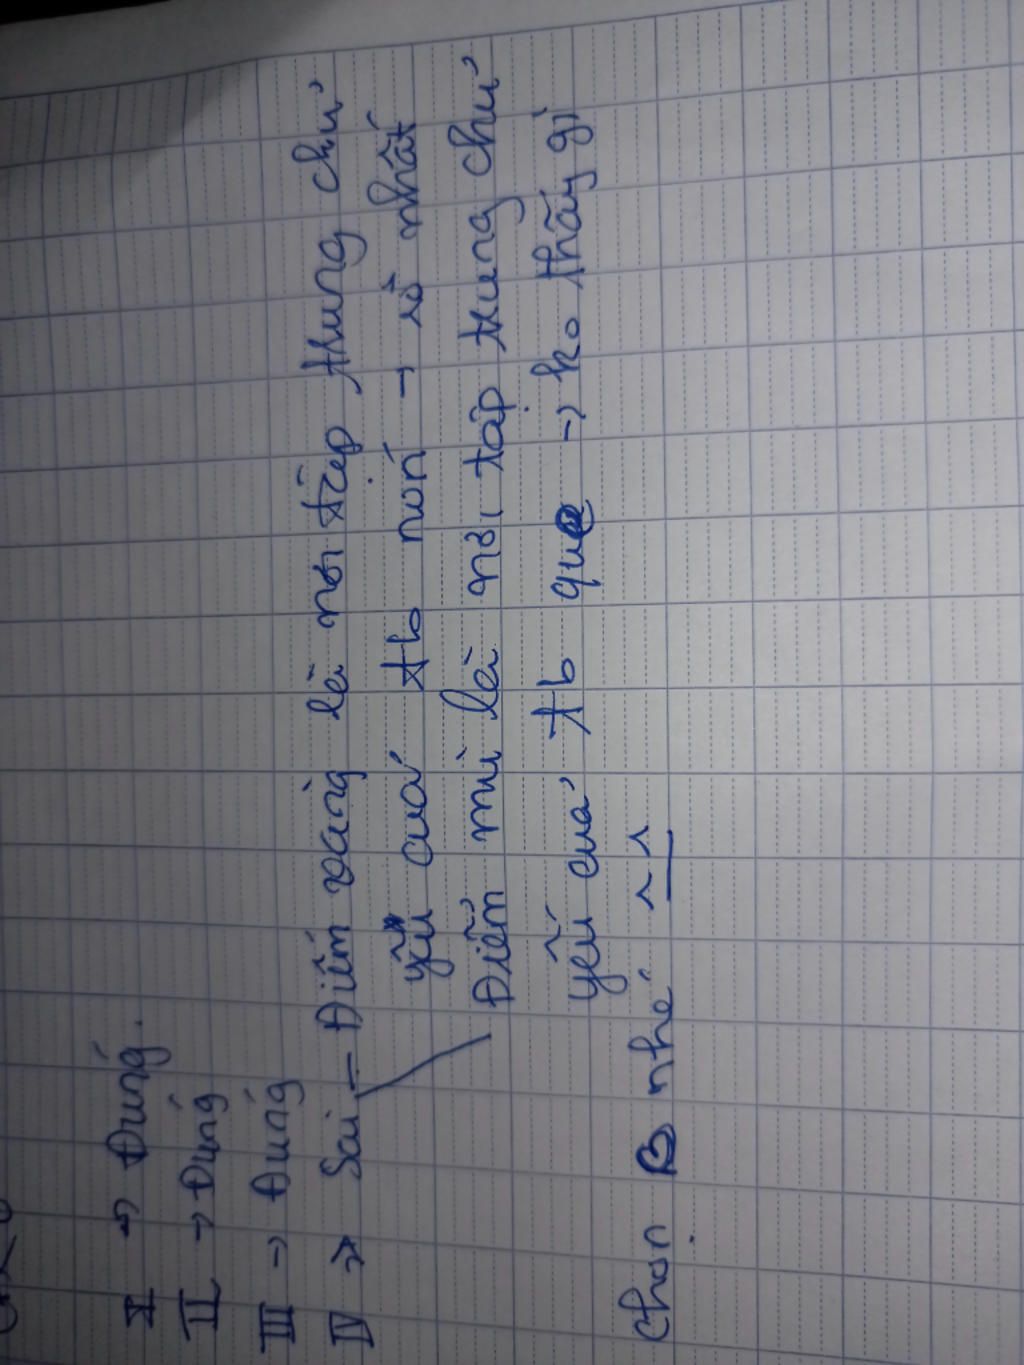 I → Đúng.
II → Đúng
III → Đúng
IV → Sai – Điểm vàng là nơi tập trung chủ
yếu của tb nón → rõ nhất
Điểm mù là nơi tập trung chủ
yếu của tb que → ko thấy gì
Chọn B nhé ^^